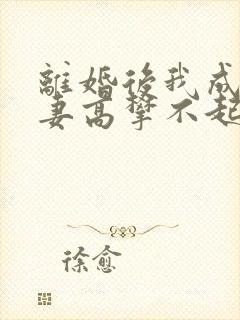 離婚後我成
妻高攀不起
徐愈